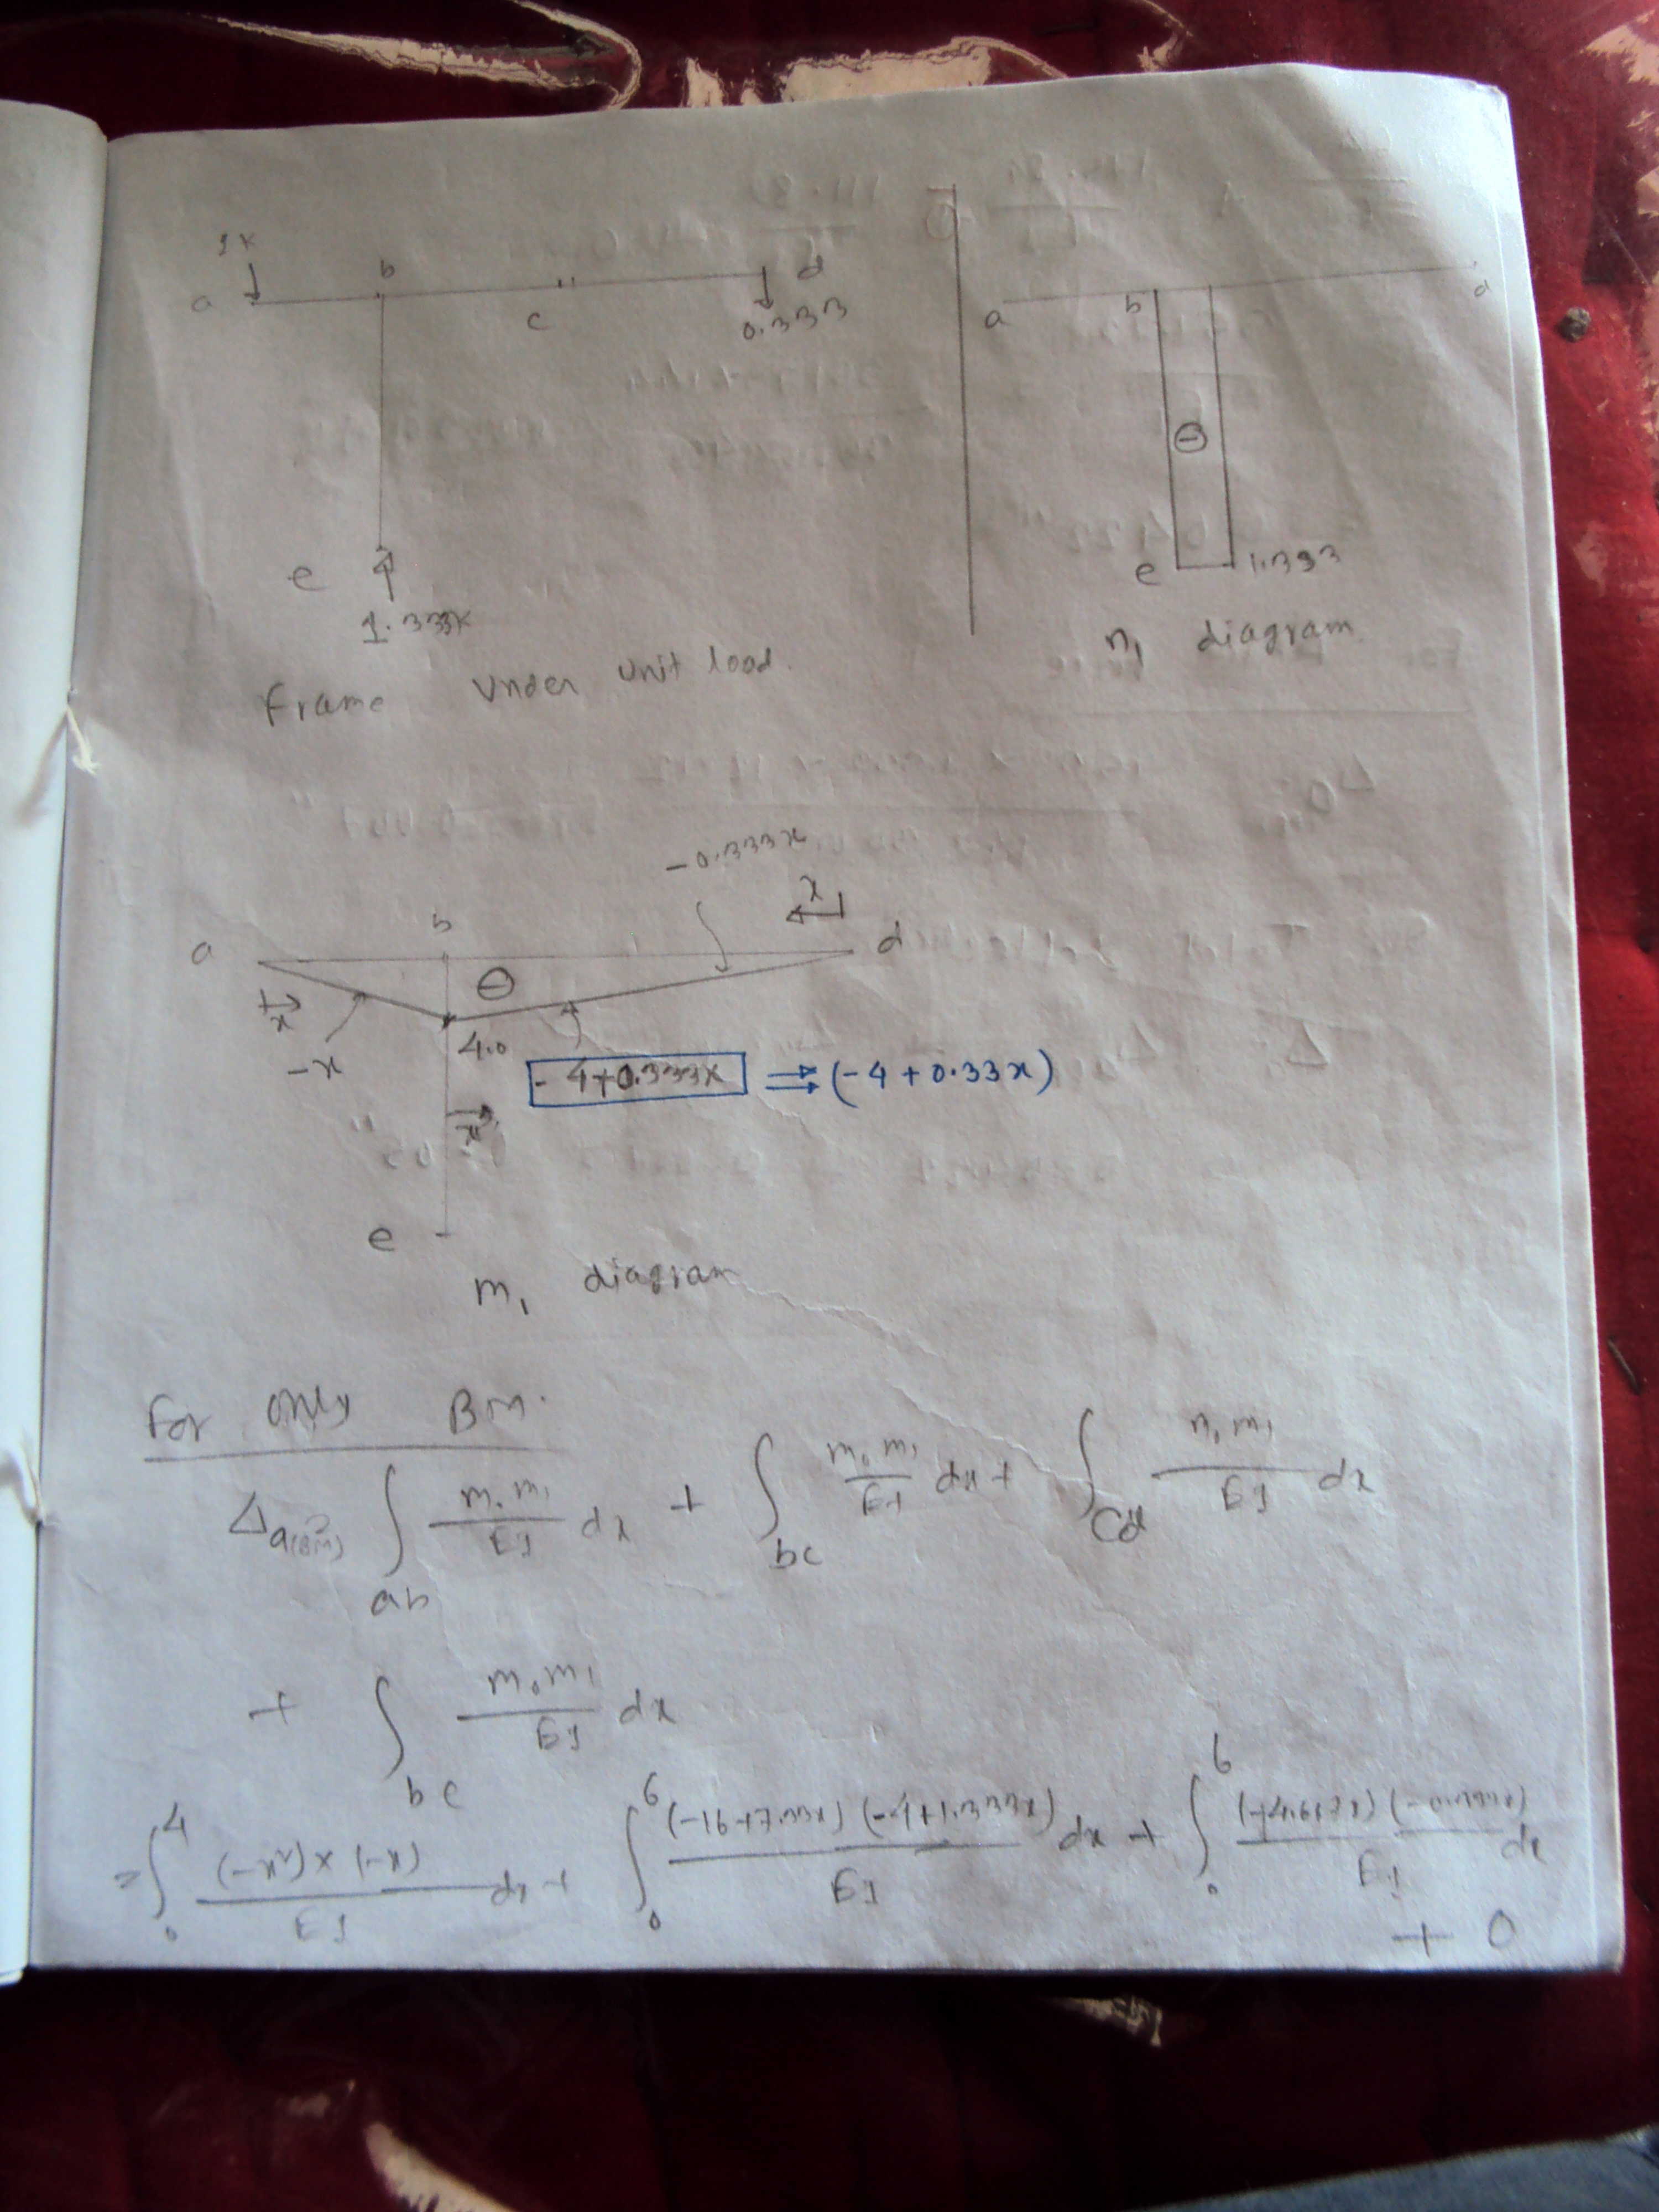 1K
a b c d
0.333
e
1.333K
Frame under unit load.
a b d
⊖
e 1.333
n₁ diagram
-0.333x
x
a b d
⊖
x
-x
4.0
- 4+0.333x ⇒ (-4 + 0.33x)
x
e
m₁ diagram
For only BM.
Δa(BM) = ∫ab m₀m₁/EI dx + ∫bc m₀m₁/EI dx + ∫cd m₀m₁/EI dx
+ ∫bc m₀m₁/EI dx
= ∫₀⁴ (-x²)×(-x)/EI dx + ∫₀⁶ (-16+7.33x)(-4+1.333x)/EI dx + ∫₀⁶ (-0.333x)/EI dx
+ 0